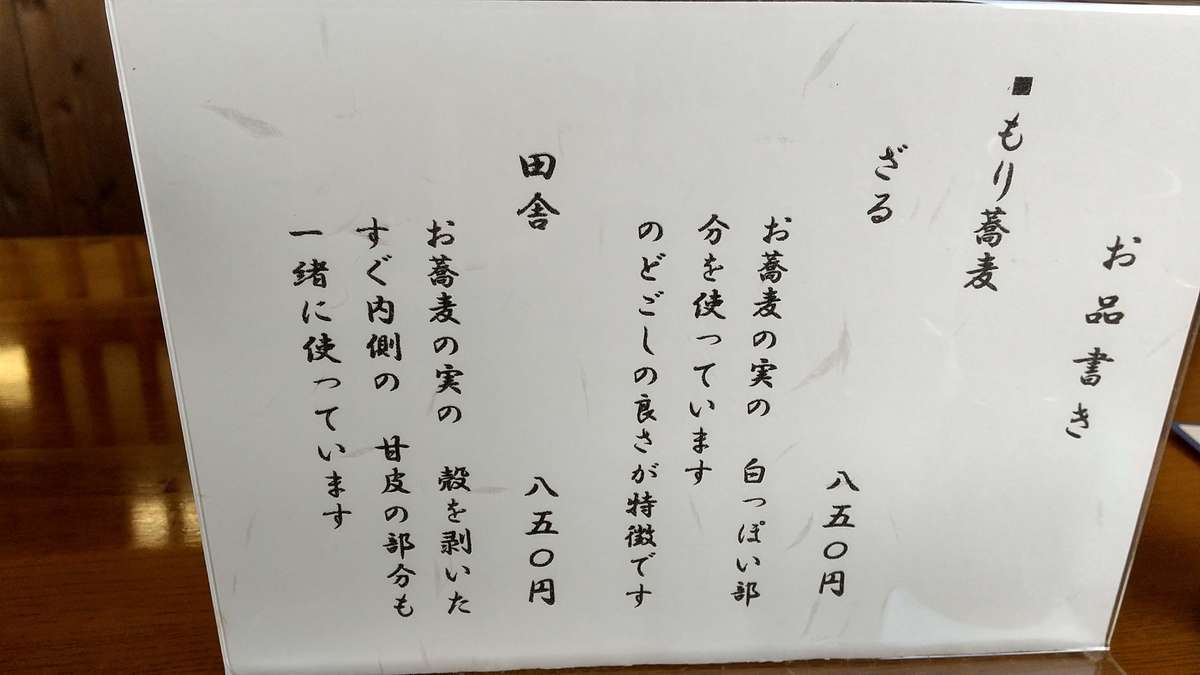 お品書き
■もり蕎麦
ざる 八五〇円
お蕎麦の実の 白っぽい部
分を使っています
のどごしの良さが特徴です
田舎 八五〇円
お蕎麦の実の 殻を剥いた
すぐ内側の 甘皮の部分も
一緒に使っています